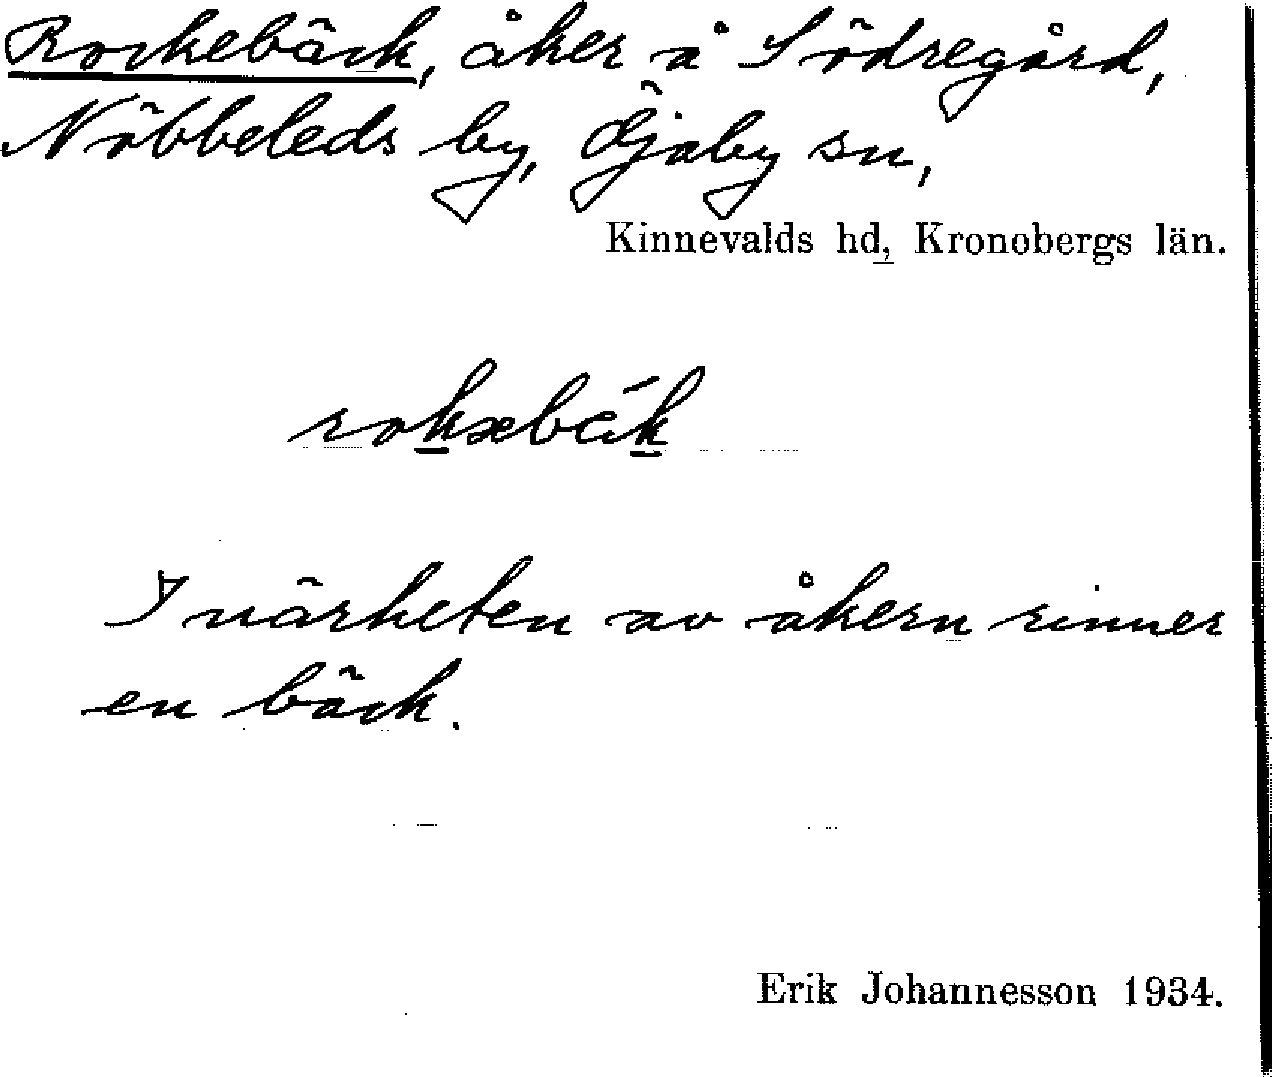 Rockebäck, åker å Södregård,
Nöbbeleds by, Öjaby sn,
Kinnevalds hd, Kronobergs län.
rokæbäk
I närheten av åkern rinner
en bäck.
Erik Johannesson 1934.